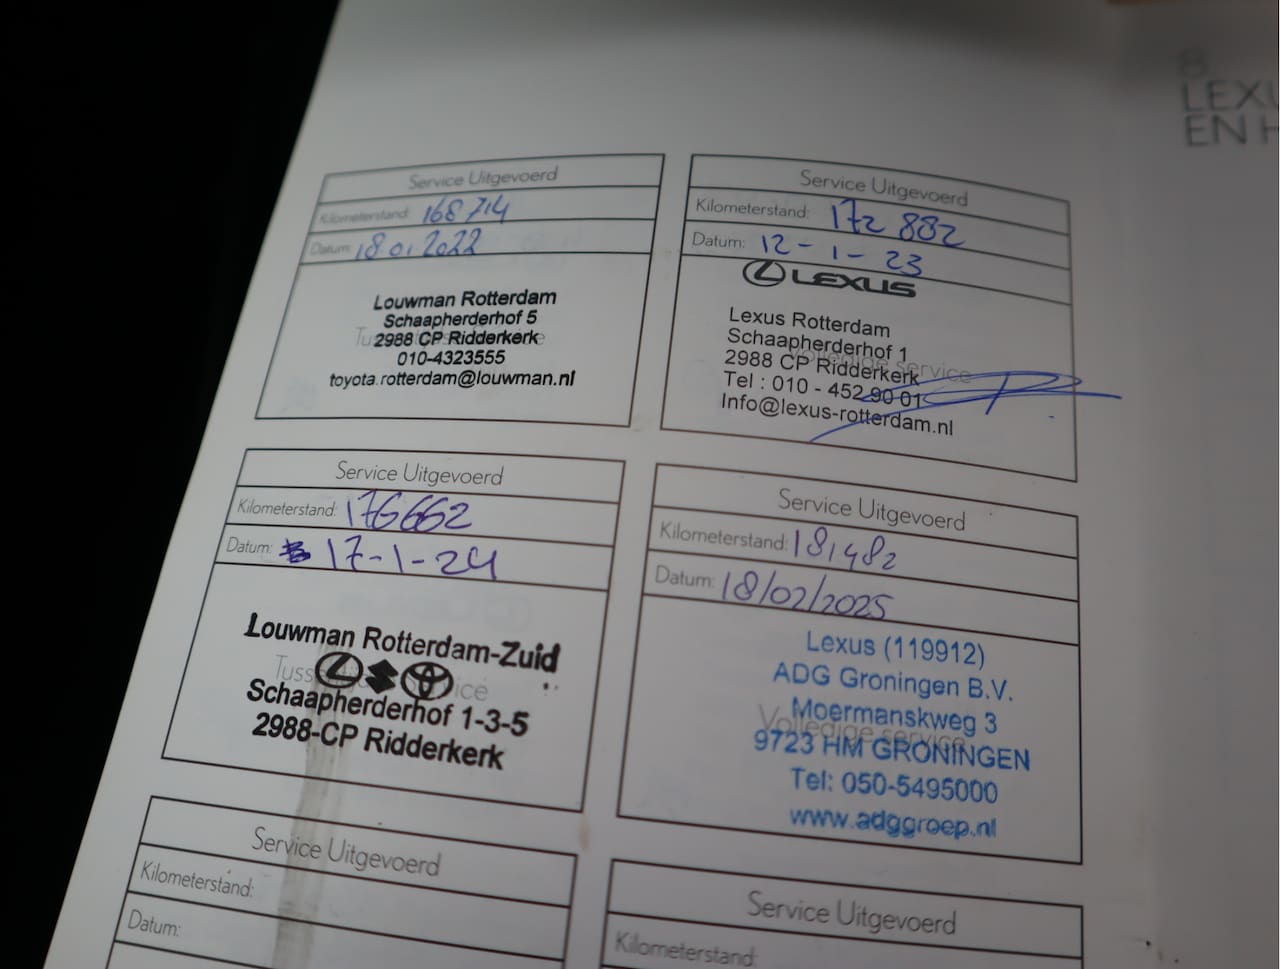 8
LEXU
EN H
Service Uitgevoerd
Kilometerstand: 168714
Datum: 18.01.2022
Louwman Rotterdam
Schaapherderhof 5
2988 CP Ridderkerk
010-4323555
toyota.rotterdam@louwman.nl
Service Uitgevoerd
Kilometerstand: 172 882
Datum: 12-1-23
LEXUS
Lexus Rotterdam
Schaapherderhof 1
Volledige service
2988 CP Ridderkerk
Tel : 010 - 452 90 01
Info@lexus-rotterdam.nl
Service Uitgevoerd
Kilometerstand: 176662
Datum: 17-1-24
Louwman Rotterdam-Zuid
Schaapherderhof 1-3-5
2988-CP Ridderkerk
Service Uitgevoerd
Kilometerstand: 181482
Datum: 18/02/2025
Lexus (119912)
ADG Groningen B.V.
Moermanskweg 3
Volledige service
9723 HM GRONINGEN
Tel: 050-5495000
www.adggroep.nl
Service Uitgevoerd
Kilometerstand:
Datum:
Service Uitgevoerd
Kilometerstand: